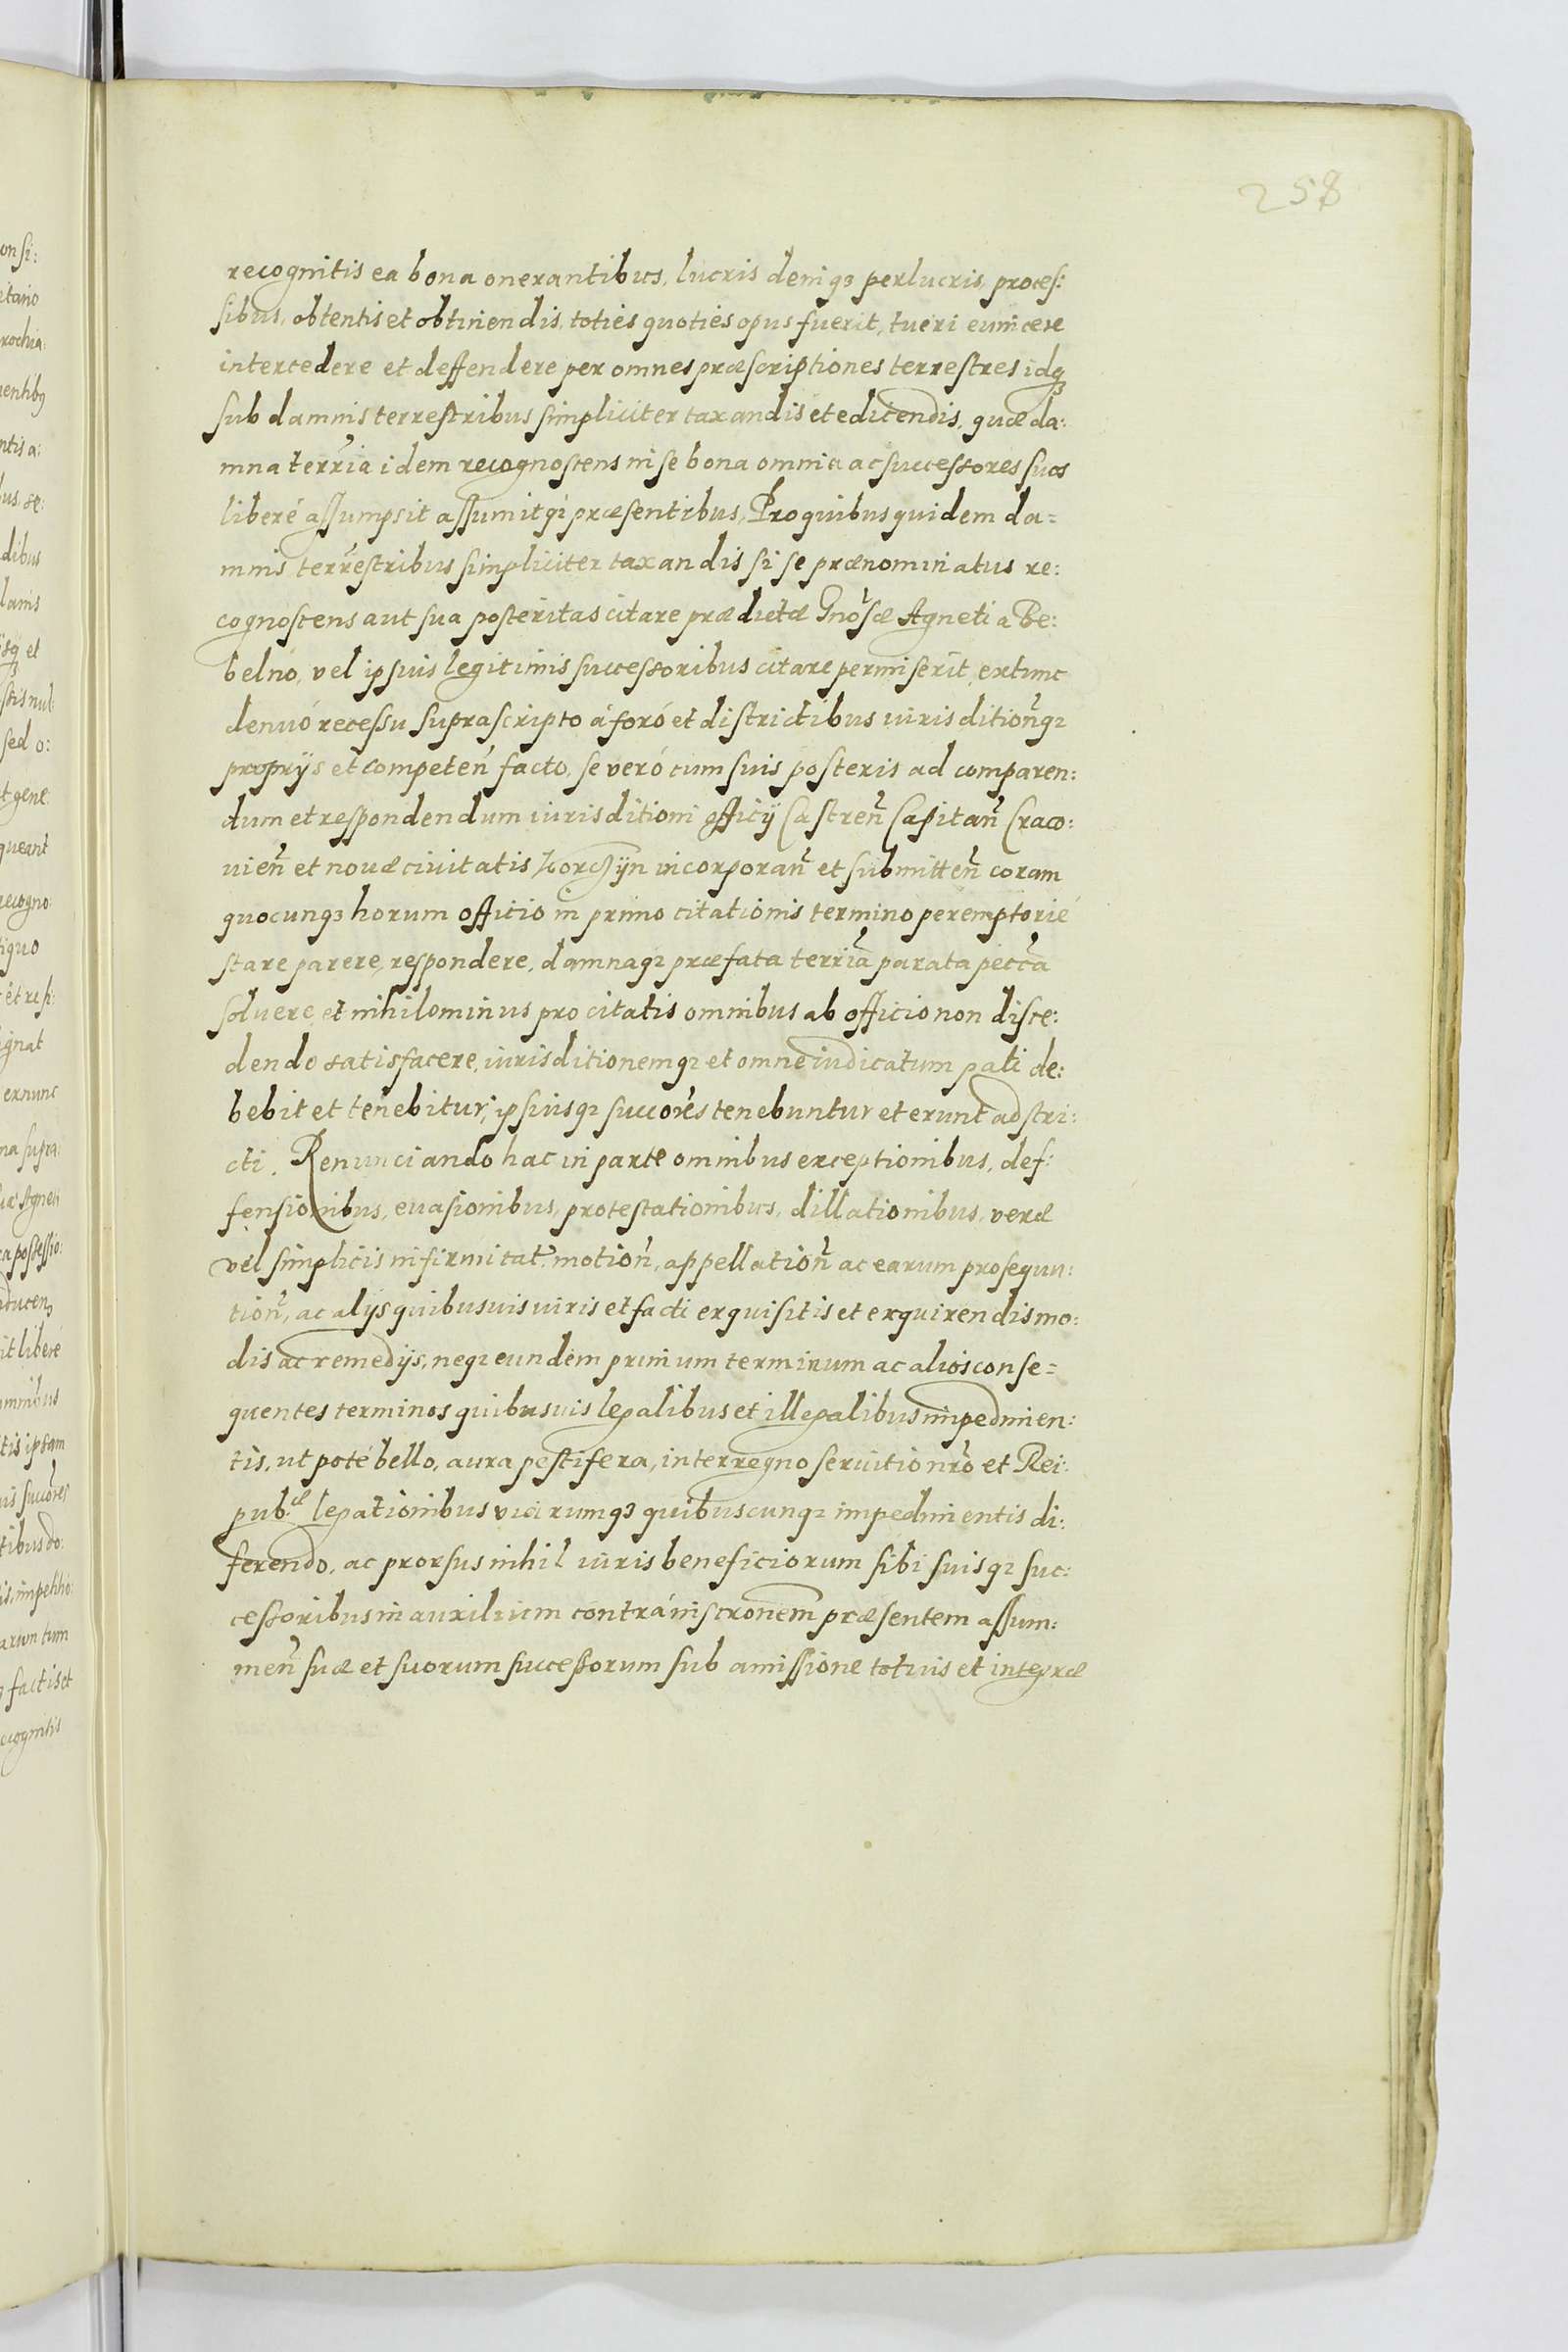 258
recognitis ea bona onerantibus, lucris deniqꝫ perlucris, proces:
sibus, obtentis et obtinendis, toties quoties opus fuerit, tueri euincere
intercedere et deffendere per omnes præscriptiones terrestres idqꝫ
sub damnis terrestribus simpliciter taxandis et edicendis, quæ da:
mna terria idem recognoscens in se bona omnia ac successores suos
liberé assumpsit assumitqꝫ præsentibus, Pro quibus quidem da=
mnis terrestribus simpliciter taxandis si se prænominatus re:
cognoscens aut sua posteritas citare prædictæ Gnosæ Agneti a Be:
belno, vel ipsius legitimis successoribus citare permiserit, extunc
denuó recessu suprascripto á foró et districtibus iurisditionqꝫ
proprijs et competen facto, se veró cum suis posteris ad comparen:
dum et respondendum iurisditioni officij Castren Capitan Craco:
uien et nouæ ciuitatis Korczyn incorporan et submitten coram
quocunqꝫ horum officio in primo citationis termino peremptorié
stare parere, respondere, damnaqꝫ præfata terria parata pecca
soluere, et nihilominus pro citatis omnibus ab officio non disce:
dendo satisfacere, iurisditionemqꝫ et omne iudicatum pati de:
bebit et tenebitur, ipsiusqꝫ succores tenebuntur et erunt adstri:
cti. Renunciando hac in parte omnibus exceptionibus, def:
fensionibus, euasionibus, protestationibus, dillationibus, veræ
vel simplicis infirmitat motion, appellation ac earum prosequu:
tion, ac alijs quibusuis iuris et facti exquisitis et exquirendis mo:
dis ac remedijs, neqꝫ eundem primum terminum ac alios conse=
quentes terminos quibusuis legalibus et illegalibus impedimen:
tis, ut poté bello, aura pestifera, interregno seruitio nro et Rei:
pub.æ legationibus viarumqꝫ quibuscunqꝫ impedimentis di:
ferendo, ac prorsus nihil iuris beneficiorum sibi suisqꝫ suc:
cessoribus in auxilium contrá inscronem præsentem assum:
men suæ et suorum successorum sub amissione totius et integræ